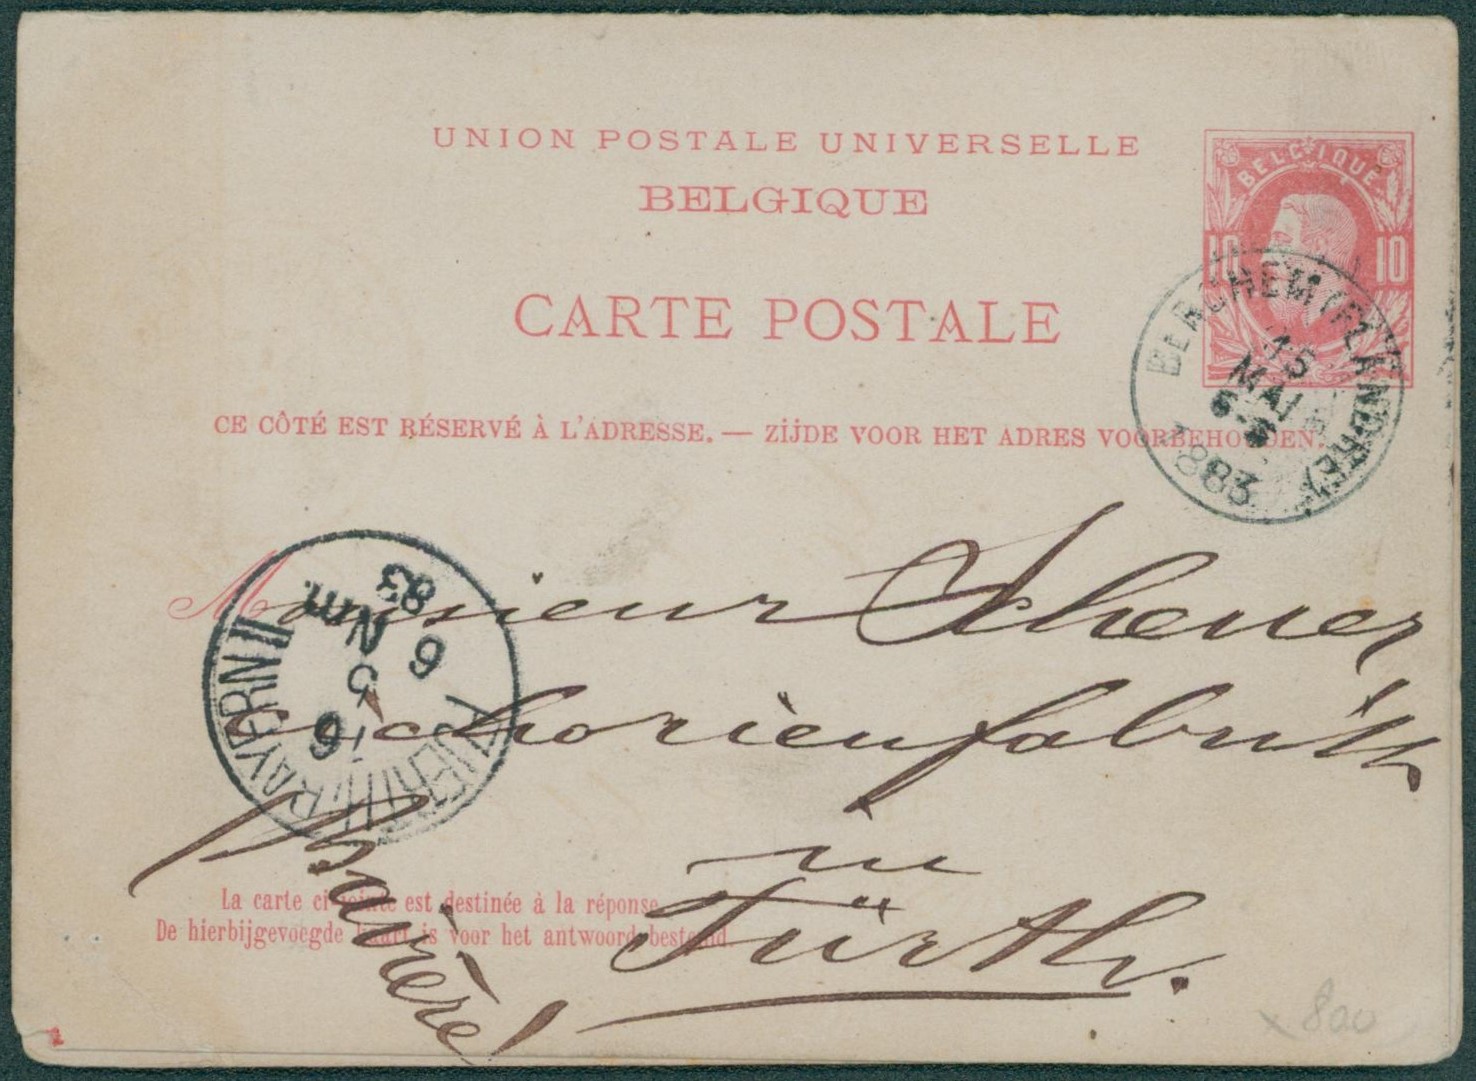 UNION POSTALE UNIVERSELLE
BELGIQUE
BELGIQUE
10 10
CARTE POSTALE
BERCHEM (FLANDRE)
15
MAI
6-
1883
CE CÔTÉ EST RÉSERVÉ À L'ADRESSE. — ZIJDE VOOR HET ADRES VOORBEHOUDEN.
Monsieur Scheuer
Cichorienfabrik
in
Fürth.
Bavière
FUERTH, BAYERN II
16
5
Nm.
6
83
La carte ci-jointe est destinée à la réponse.
De hierbijgevoegde kaart is voor het antwoord bestemd
x 800